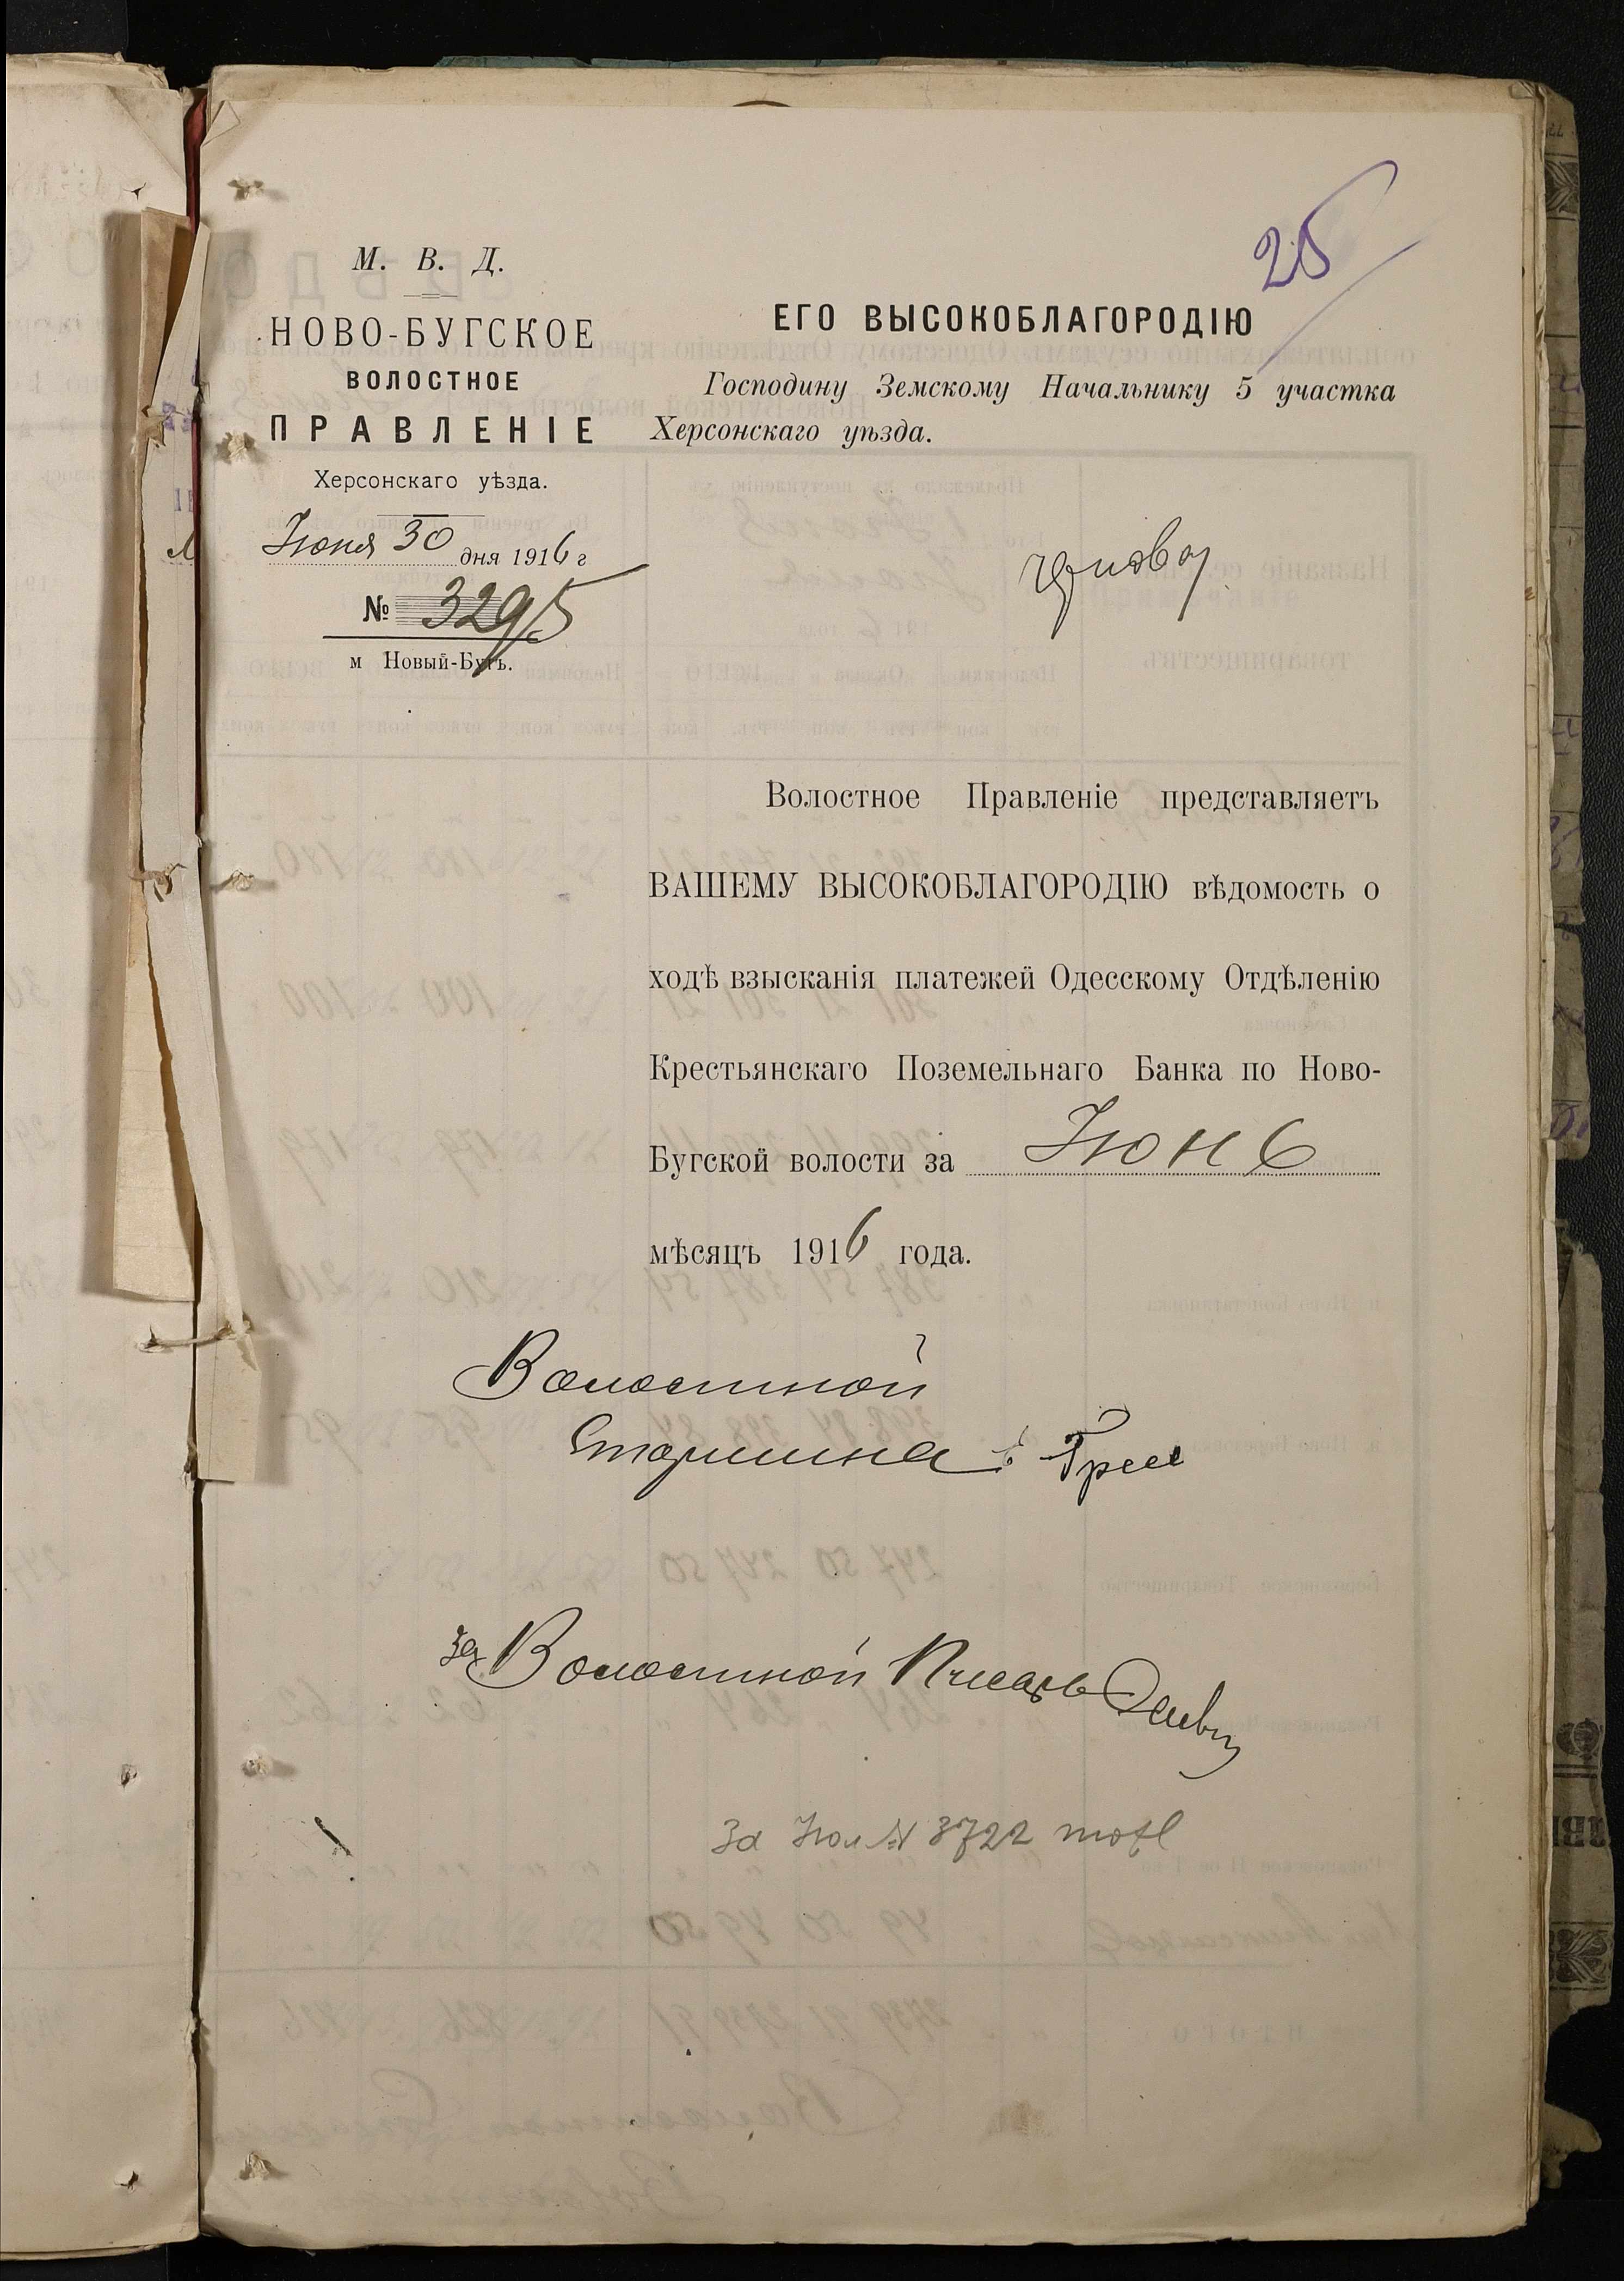 25
М. В. Д.
НОВО-БУГСКОЕ
ВОЛОСТНОЕ
ПРАВЛЕНІЕ
Херсонскаго уѣзда.
Іюня 30 дня 1916 г
№ 3295
м Новый-Бугъ.
ЕГО ВЫСОКОБЛАГОРОДІЮ
Господину Земскому Начальнику 5 участка
Херсонскаго уѣзда.
Волостное Правленіе представляетъ
ВАШЕМУ ВЫСОКОБЛАГОРОДІЮ вѣдомость о
ходѣ взысканія платежей Одесскому Отдѣленію
Крестьянскаго Поземельнаго Банка по Ново-
Бугской волости за Іюнь
мѣсяцъ 1916 года.
Волостной
Старшина
За Волостной Писарь
За Июл № 3722